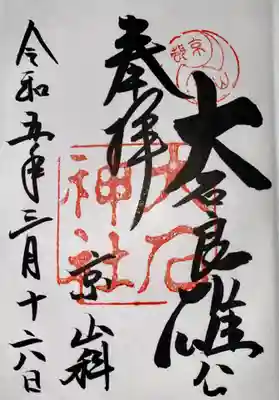 大石良雄公
奉拝
大石
神社
京山科
令和五年三月十六日